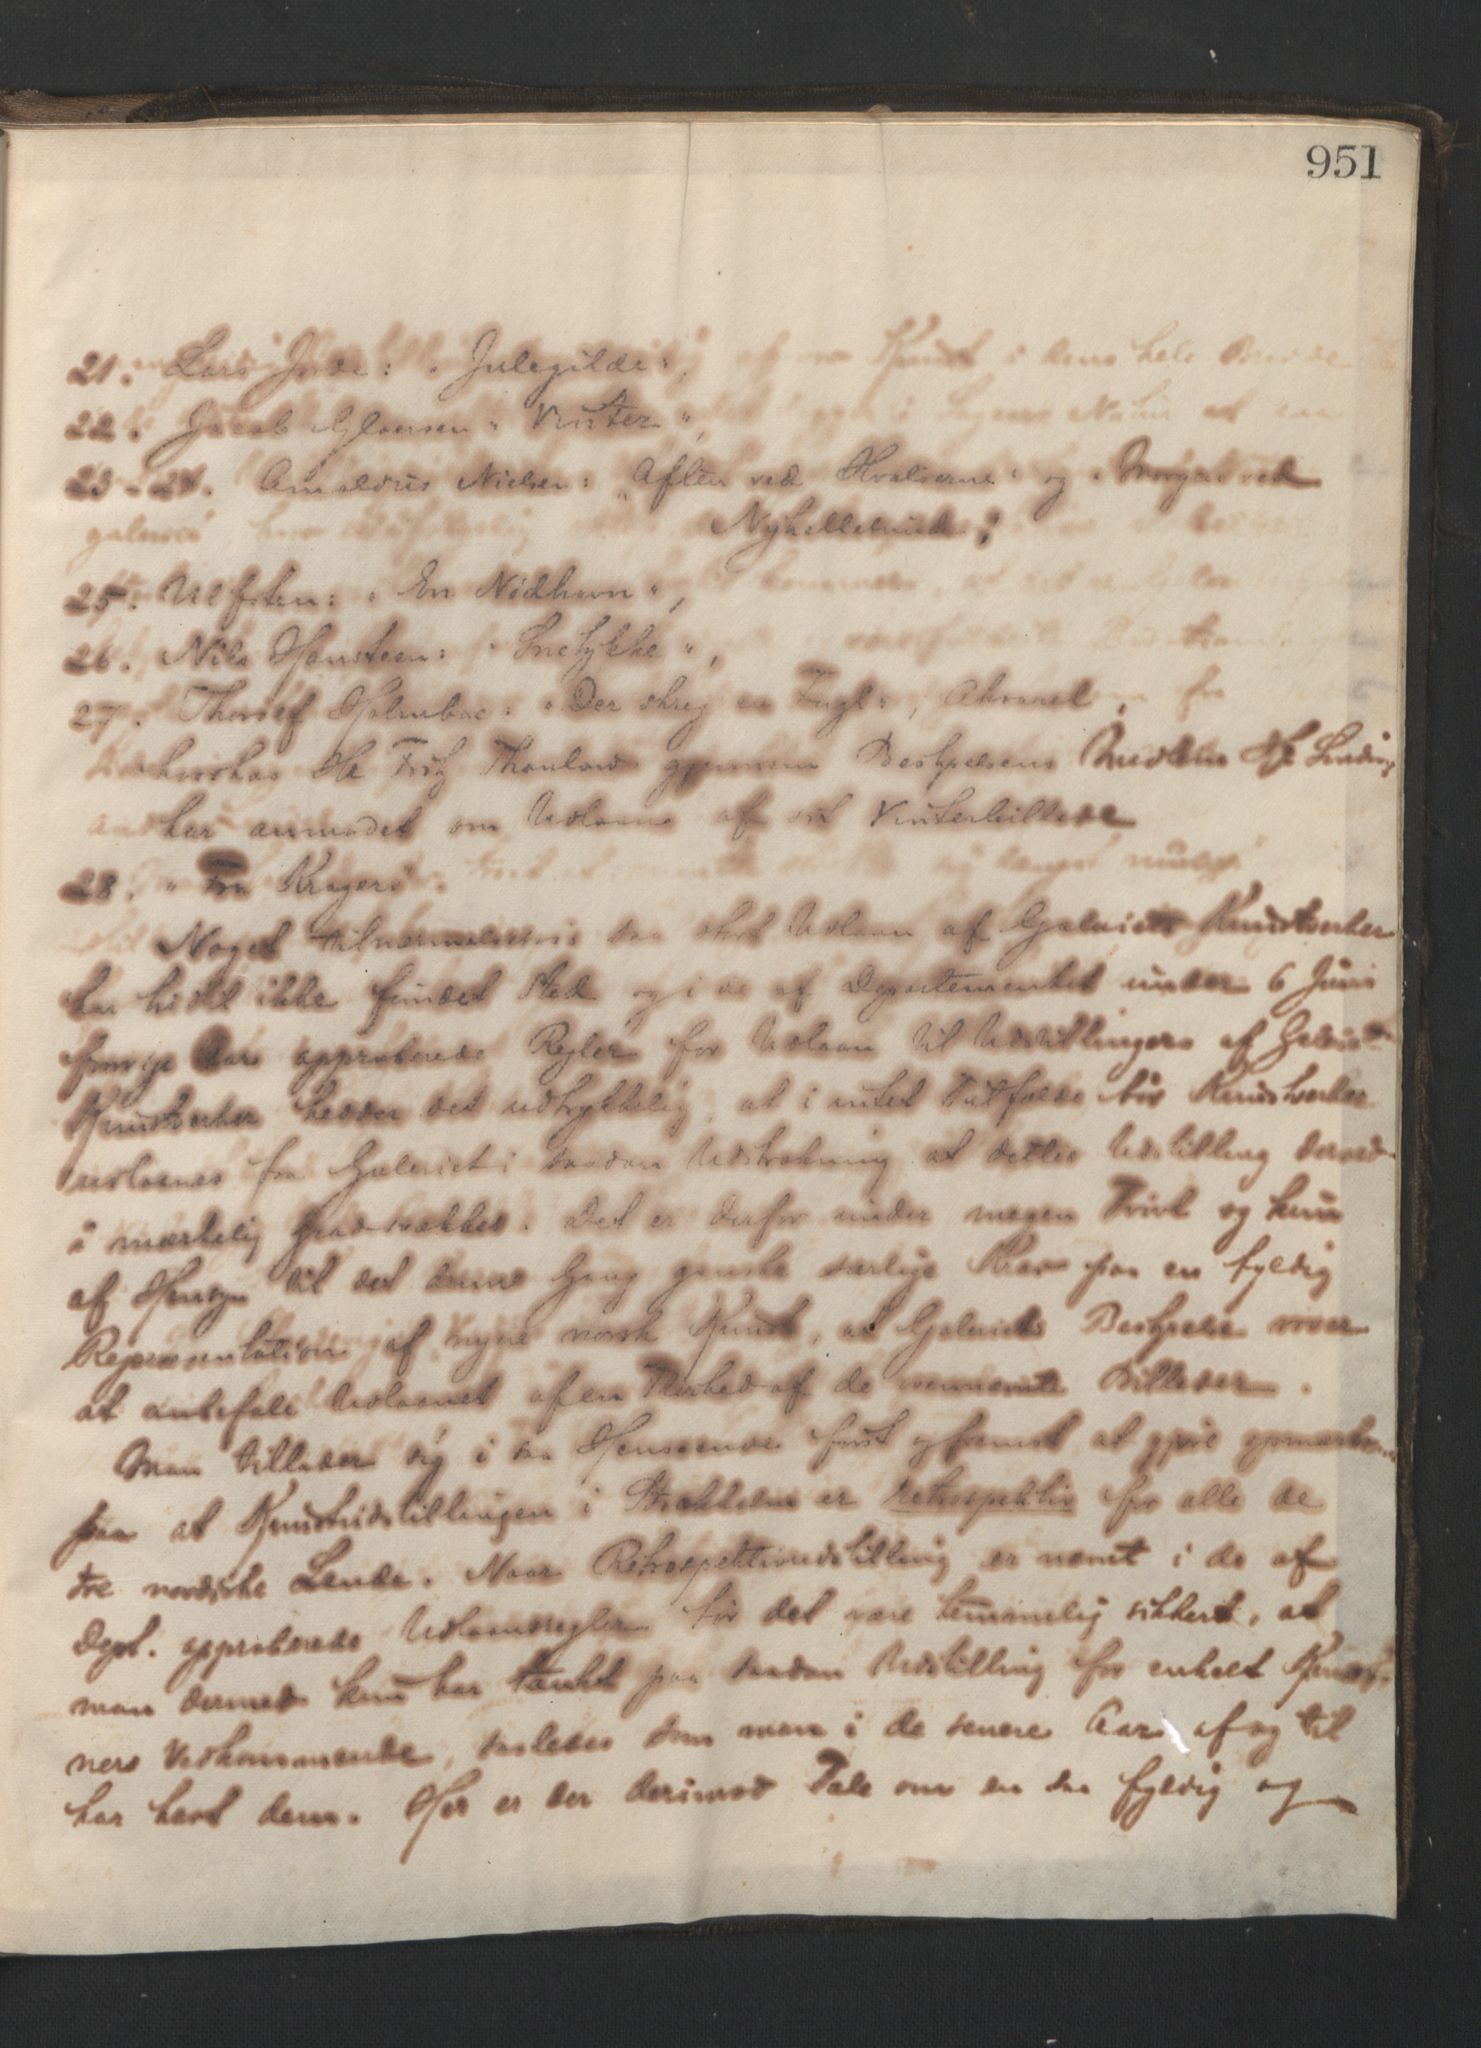 951
21. Lars Jorde: "Julegilde",
22. Jacob Gløersen "Vinter",
23-24. Amaldus Nielsen: "Aften ved Hvaløerne" og "Morgen ved
Nyhellesund",
25. Ulfsten: "En Nødhavn",
26. Nils Hansteen: "Snetykke",
27. Thorolf Holmboe: "Der skreg en Fugl", Akvarel,
hvorhos Hr Fritz Thaulow gjennem Bestyrelsens Medlem Hr Sinding
har anmodet om Udlaan af sit Vinterbillede
28. "Fra Kragerø".
Noget tilnærmelsesvis saa stort Udlaan af Galeriets Kunstverker
har hidtil ikke fundet Sted og i de af Departementet under 6 Juni
forrige Aar approberede Regler for Udlaan til Udstillinger af Galeriets
Kunstverker hedder det udtrykkelig, at i intet Tilfælde bør Kunstverker
udlaanes fra Galeriet i saadan Udstrækning at dettes Udstilling derved
i mærkelig Grad svækkes. Det er derfor under megen Tvivl og kun
af Hensyn til det denne Gang ganske særlige Krav paa en fyldig
Repræsentation af nyere norsk Kunst, at Galeriets Bestyrelse vover
at anbefale Udlaanet af en Flerhed af de ovennævnte Billeder.
Man tillader sig i saa Henseende først og fremst at gjøre opmærksom
paa at Kunstudstillingen i Stockholm er retrospektiv for alle de
tre nordiske Lande. Naar Retrospektivudstilling er nævnt i de af
Dept. approberede Udlaansregler bør det være temmelig sikkert, at
man dermed kun har tænkt paa saadan Udstilling for enkelt Kunst-
ners Vedkommende, saaledes som man i de senere Aar af og til
har havt dem. Her er der derimod Tale om en saa fyldig og